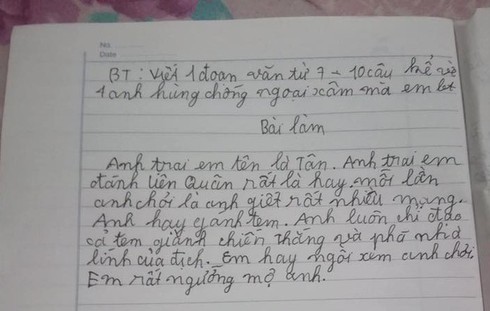 No.
Date
BT: Viết 1 đoạn văn từ 7 - 10 câu kể về
1 anh hùng chống ngoại xâm mà em biết
Bài làm
Anh trai em tên là Tân. Anh trai em
đánh liên Quân rất là hay, mỗi lần
anh chơi là anh giết rất nhiều mạng.
Anh hay gánh tem. Anh luôn chỉ đạo
cả tem giành chiến thắng và phá nhà
lính của địch. Em hay ngồi xem anh chơi
Em rất ngưỡng mộ anh.